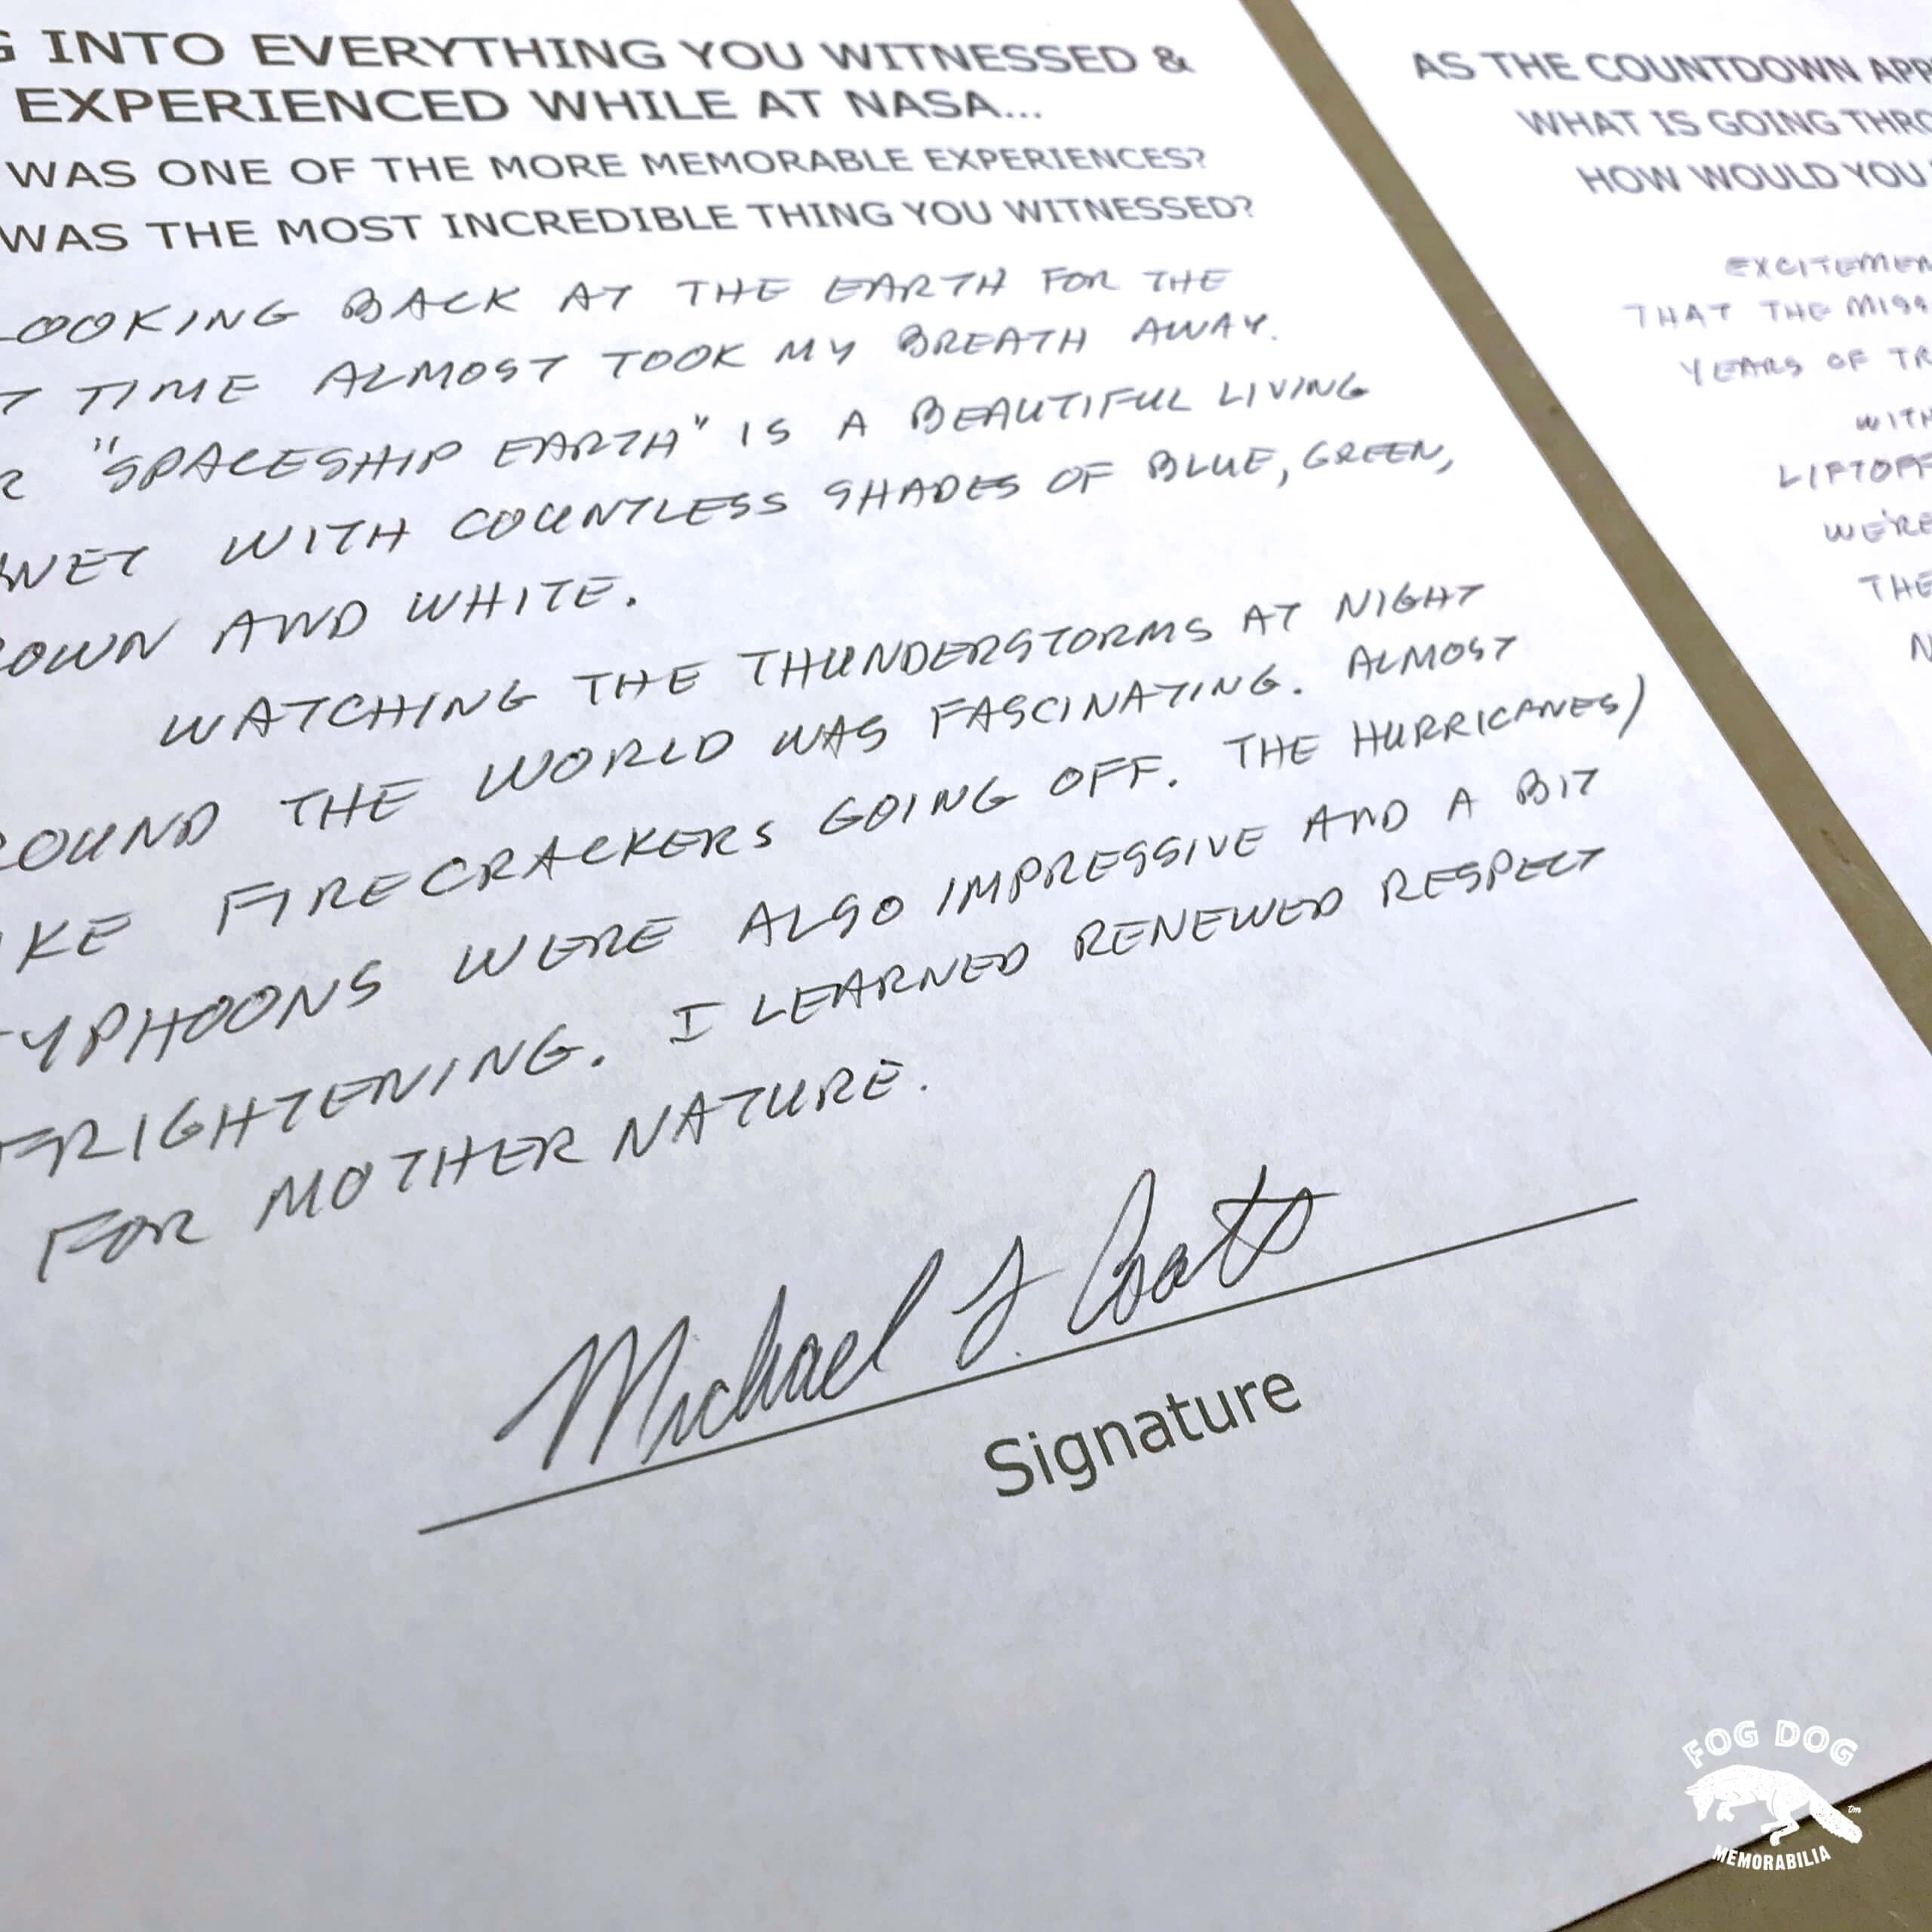 G INTO EVERYTHING YOU WITNESSED &
EXPERIENCED WHILE AT NASA...
WAS ONE OF THE MORE MEMORABLE EXPERIENCES?
WAS THE MOST INCREDIBLE THING YOU WITNESSED?
LOOKING BACK AT THE EARTH FOR THE
T TIME ALMOST TOOK MY BREATH AWAY.
R "SPACESHIP EARTH" IS A BEAUTIFUL LIVING
NET WITH COUNTLESS SHADES OF BLUE, GREEN,
OWN AND WHITE.
WATCHING THE THUNDERSTORMS AT NIGHT
ROUND THE WORLD WAS FASCINATING. ALMOST
IKE FIRECRACKERS GOING OFF. THE HURRICANES/
TYPHOONS WERE ALSO IMPRESSIVE AND A BIT
FRIGHTENING. I LEARNED RENEWED RESPECT
FOR MOTHER NATURE.
Michael L. Coats
Signature
AS THE COUNTDOWN APPR
WHAT IS GOING THRO
HOW WOULD YOU
EXCITEMEN
THAT THE MISS
YEARS OF TR
WITH
LIFTOFF
WE'RE
THE
N
FOG DOG
TM
MEMORABILIA